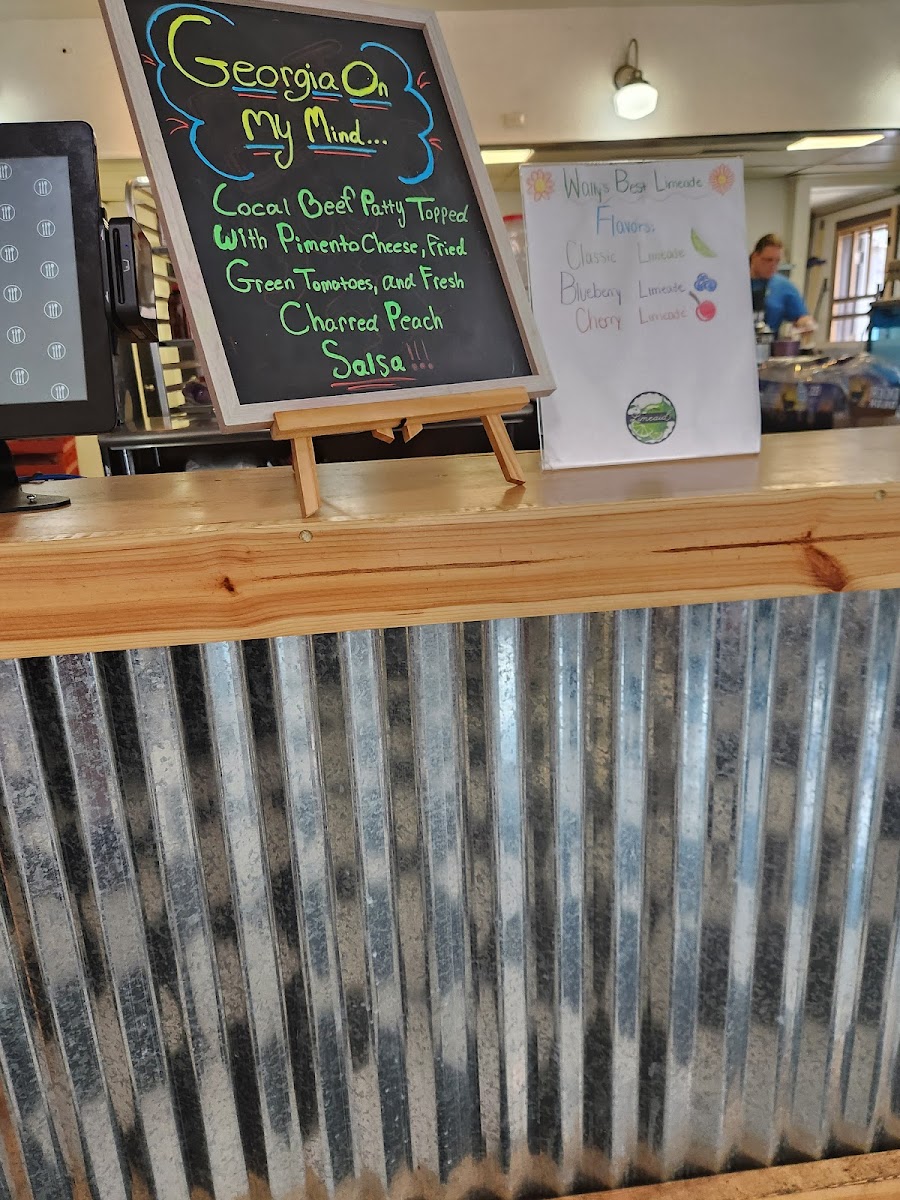 Georgia On
My Mind...
Local Beef Patty Topped
With Pimento Cheese, Fried
Green Tomatoes, and Fresh
Charred Peach
Salsa!!!
Wally's Best Limeade
Flavors.
Classic Limeade
Blueberry Limeade
Cherry Limeade
Limeade